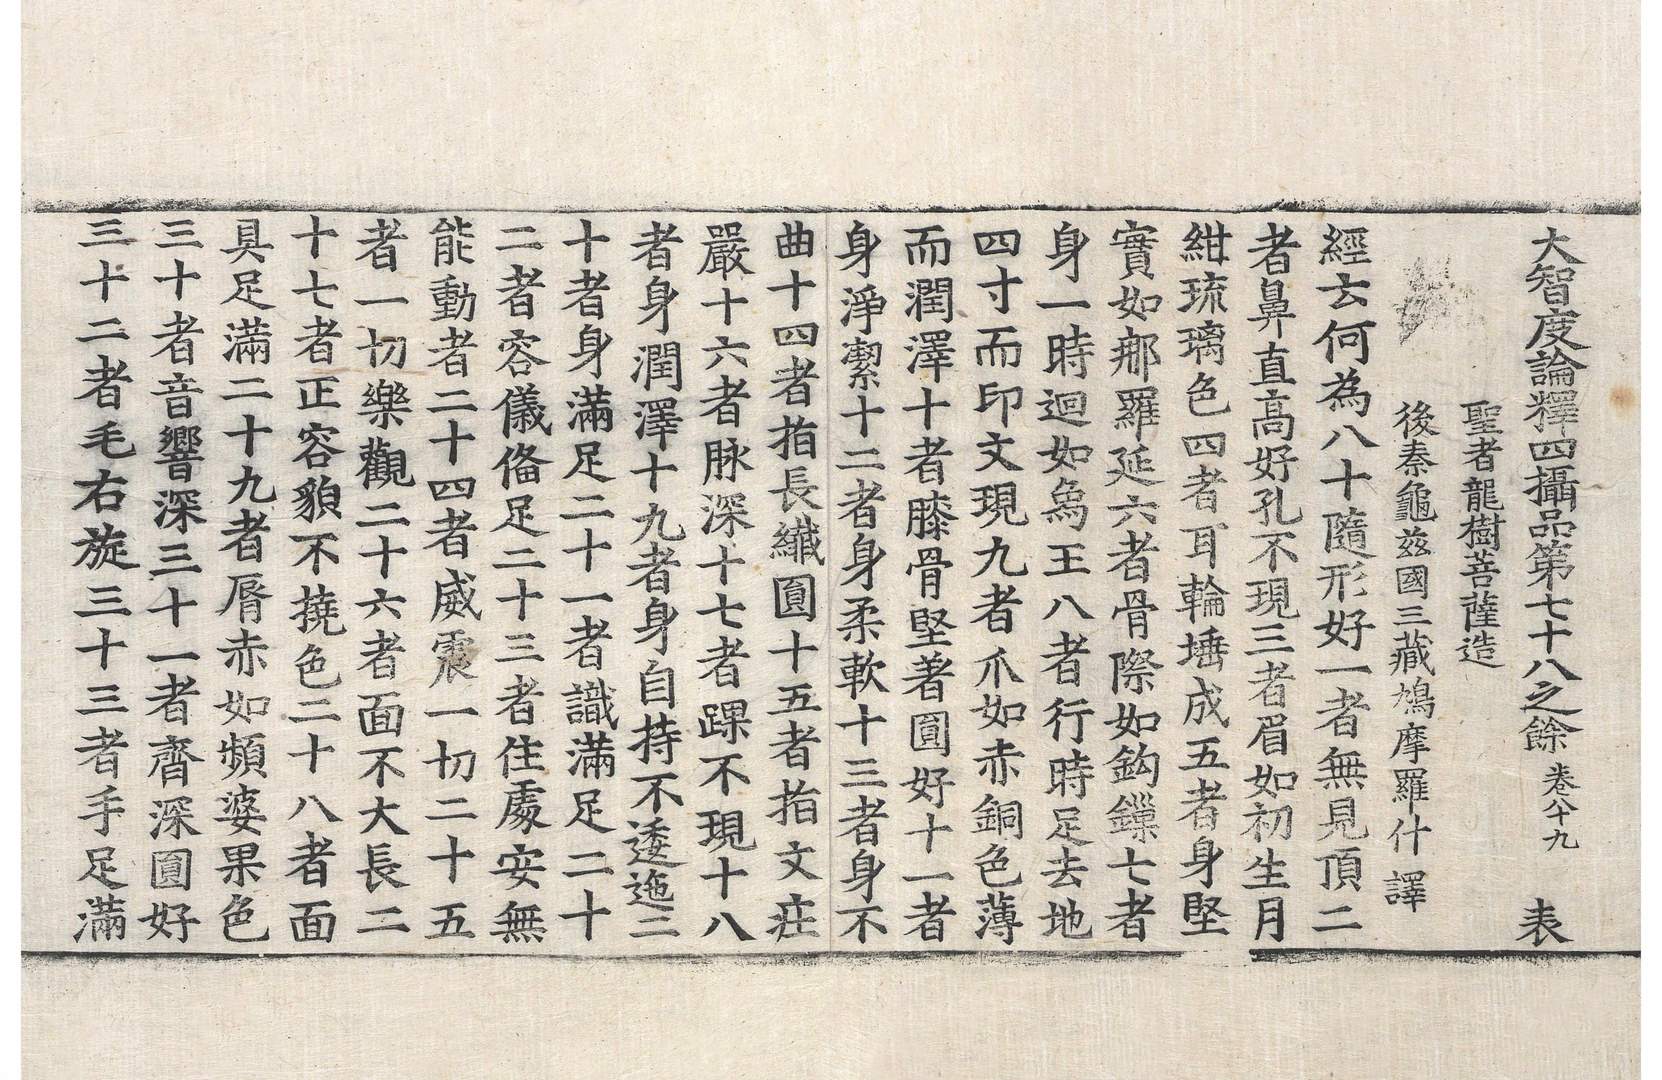 大智度論釋四攝品第七十八之餘 卷八十九 表
聖者龍樹菩薩造
後秦龜茲國三藏鳩摩羅什 譯
經云何為八十隨形好一者無見頂二
者鼻直高好孔不現三者眉如初生月
紺琉璃色四者耳輪埵成五者身堅
實如那羅延六者骨際如鈎鏁七者
身一時迴如象王八者行時足去地
四寸而印文現九者爪如赤銅色薄
而潤澤十者膝骨堅著圓好十一者
身淨潔十二者身柔軟十三者身不
曲十四者指長纖圓十五者指文庄
嚴十六者脉深十七者踝不現十八
者身潤澤十九者身自持不逶迤二
十者身滿足二十一者識滿足二十
二者容儀俻足二十三者住處安無
能動者二十四者威震一切二十五
者一切樂觀二十六者面不大長二
十七者正容貌不撓色二十八者面
具足滿二十九者脣赤如頻婆果色
三十者音響深三十一者齊深圓好
三十二者毛右旋三十三者手足滿